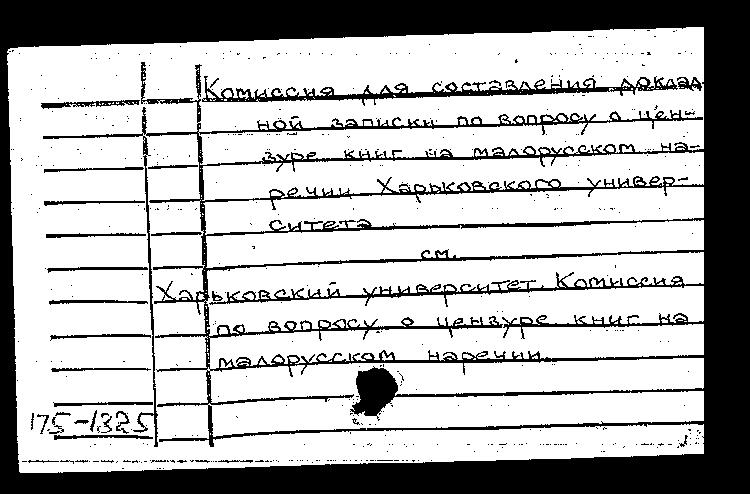 Комиссия для составления доклад
ной записки по вопросу о цен-
зуре книг на малорусском на-
речии Харьковского универ-
ситета
см.
Харьковский университет. Комиссия
по вопросу о цензуре книг на
малорусском наречии.
175-1325